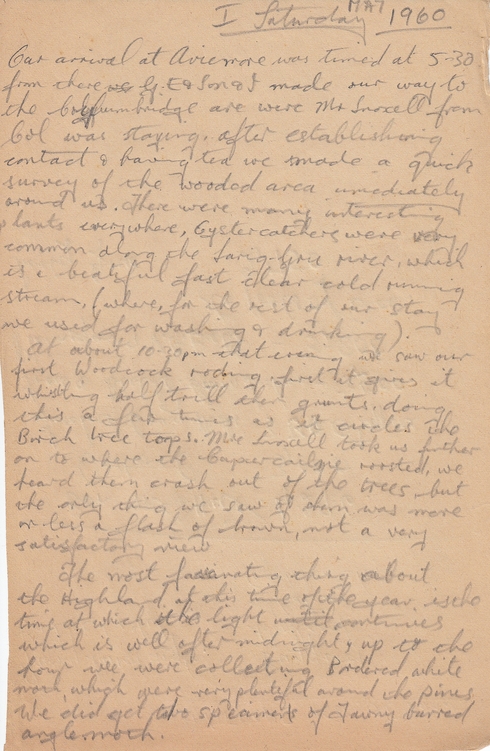 I Saturday MAY 1960
Our arrival at Aviemore was timed at 5-30
from there G. E & Son & I made our way to
the are were Mr Snoxell from
Col was staying. after establishing
contact & having tea we made a quick
survey of the wooded area imediately
around us. There were many interesting
plants everywhere, Oystercatchers were very
common along the river, which
is a beatiful fast clear cold running
stream, (where, for the rest of our stay
we used for washing & drinking).
At about 10-30pm that evening we saw our
first Woodcock roding, first it gives it
whistling half trill then grunts. doing
this a few times as it circles the
Birch tree tops. Mr Snoxell took us further
on to where the Capercailzie roosted, we
heard them crash out of the trees, but
the only thing we saw of them was more
or less a flash of brown, not a very
satisfactory view
The most thing about
the Highland at this time of the year is the
time at which the light continues
which is well after midnight, up to the
hour we were collecting Bordered white
moth, which were very plentiful around the pines
We did get two of Tawny barred
angle moth.